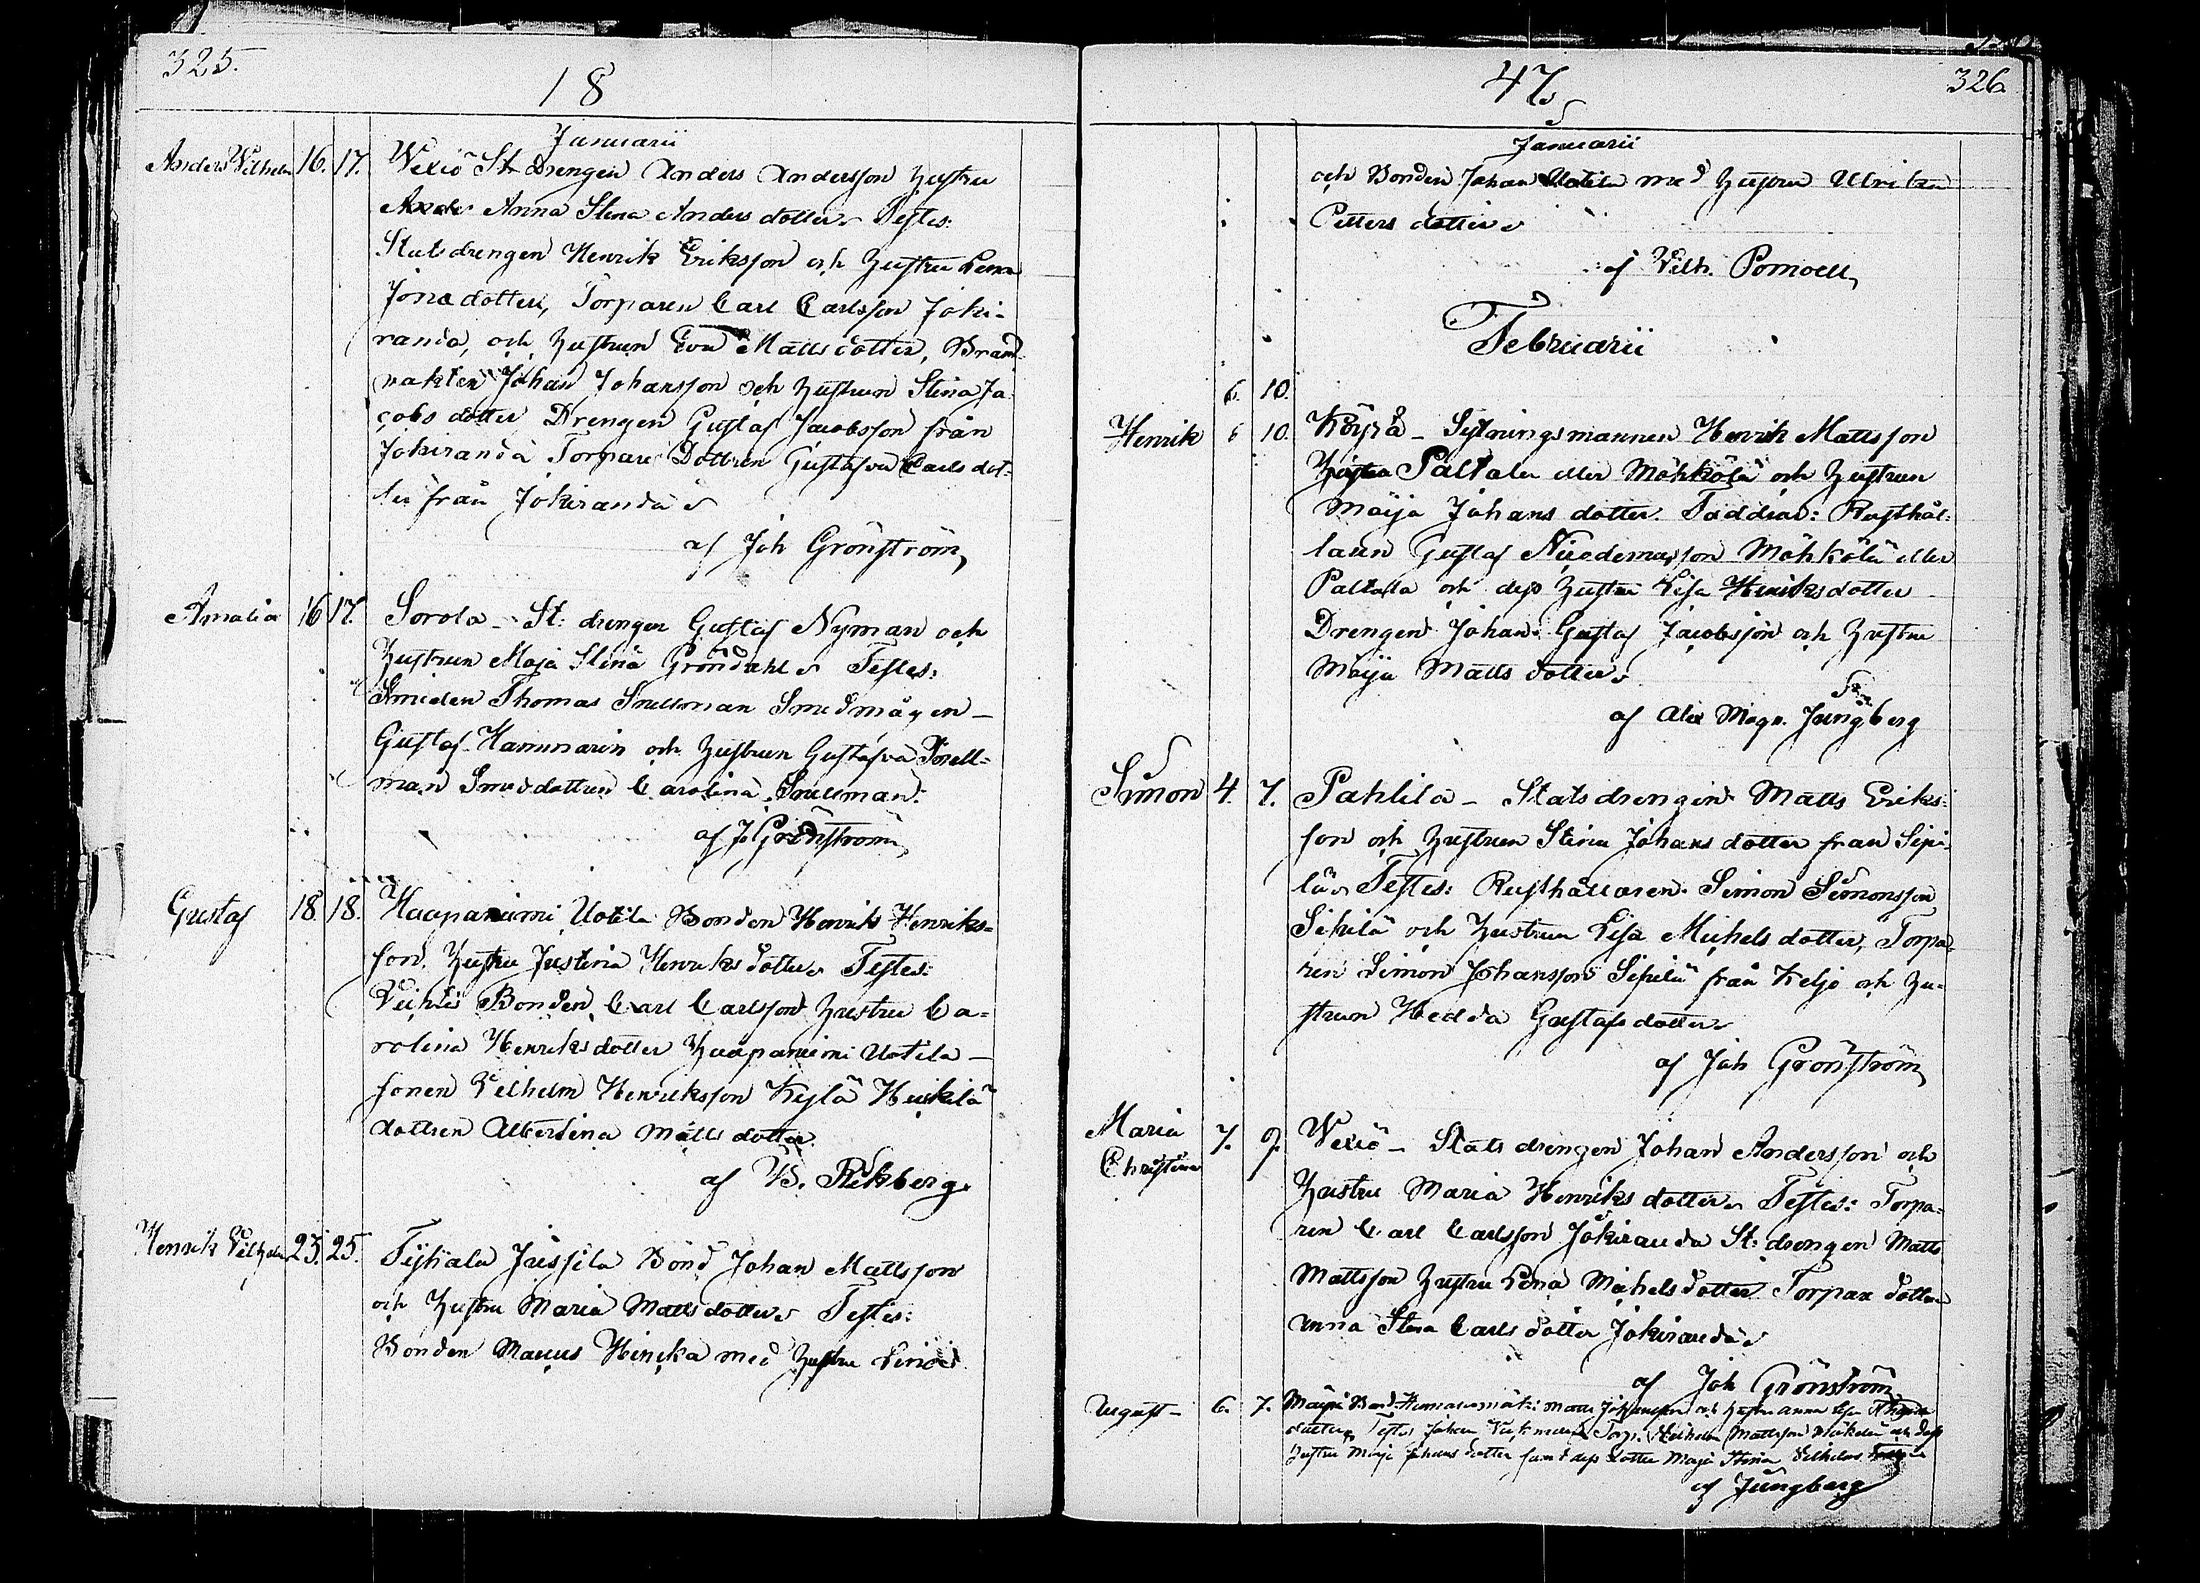 325.
18
Januarii
Anders Vilhelm 16. 17. Wexiö St. Drengen Anders Andersson hustru
Anna Stina Anders dotter. Testes:
Statsdrengen Henrik Eriksson och hustru Lena
Jonædotter, Torparen Carl Carlsson Joki-
randa, och hustrun Eva Mattsdotter, Brand-
vakten Johan Johansson och hustrun Stina Ja-
cobs dotter Drengen Gustaf Jacobsson från
Jokiranda Torpare Dottren Gustafva Carls dot-
ter från Jokiranda
af Joh Grönström
Amalia 16 17. Sorola - St: drengen Gustaf Nyman och
hustrun Maja Stina Gröndahl Testes:
Smeden Thomas Snellman Smedmågen -
Gustaf Hammarin och hustrun Gustafva Snell=
man Smeddottren Carolina Snellman.
af J. Grönström
Gustaf 18. 18. Haapaniemi Uotila Bonden Henrik Henriks=
son, hustru Justina Henriks dotter Testes:
Bonden Carl Carlsson hustru Ca=
rolina Henriksdotter Haapaniemi Uotila -
sonen Vilhelm Henriksson Kylä Heikkilä
dottren Albertina Matts dotter.
af
Henrik Vilhelm 23. 25. Tyhala Jussila Bond Johan Mattsson
och hustru Maria Matts dotter Testes:
Bonden Marcus Heinicka med hustru
47.
326.
Januarii
och Bonden Johan Uotila med hustrun Ulrika
Petters dotter
af Vilh. Pomoell
Februarii
6. 10.
Henrik 6 10. Köyrä - Sytningsmannen Henrik Mattsson
Paltala eller Möhkölä och hustrun
Maija Johans dotter. Faddrar: Rusthål-
laren Gustaf Nicodemusson Möhkölä eller
Paltalla och dess hustru Lisa Henriksdotter
Drengen Johan Gustaf Jacobsson och hustru
Maija Matts dotter
af Alex Magn. Jungberg
Simon 4. 7. Pahlila - Statsdrengen Matts Eriks-
son och hustrun Stina Johans dotter från Sipi-
lä Testes: Rusthållaren Simon Simonsson
Sipilä och hustrun Lisa Michels dotter, Torpa-
ren Simon Johansson Sipilä från Keljo och hu-
strun Hedda Gustafsdotter
af Joh Grönström
Maria Christina 7. 9. Wexiö - Stats drengen Johan Andersson och
hustru Maria Henriks dotter Testes: Torpa-
ren Carl Carlsson Jokiranda St: drengen Matts
Mattsson hustru Lena Michels dotter Torpar dotter
Anna Stina Carls dotter Jokiranda
af Joh Grönström
August - 6. 7. Matts Johansson och hustru Anna Lisa
dotter Testes Johan Torp. Vilhelm Mattsson Mäkelä och dess
hustru Maja Johans dotter samt dess dotter Maja Stina Vilhelms
af Jungberg